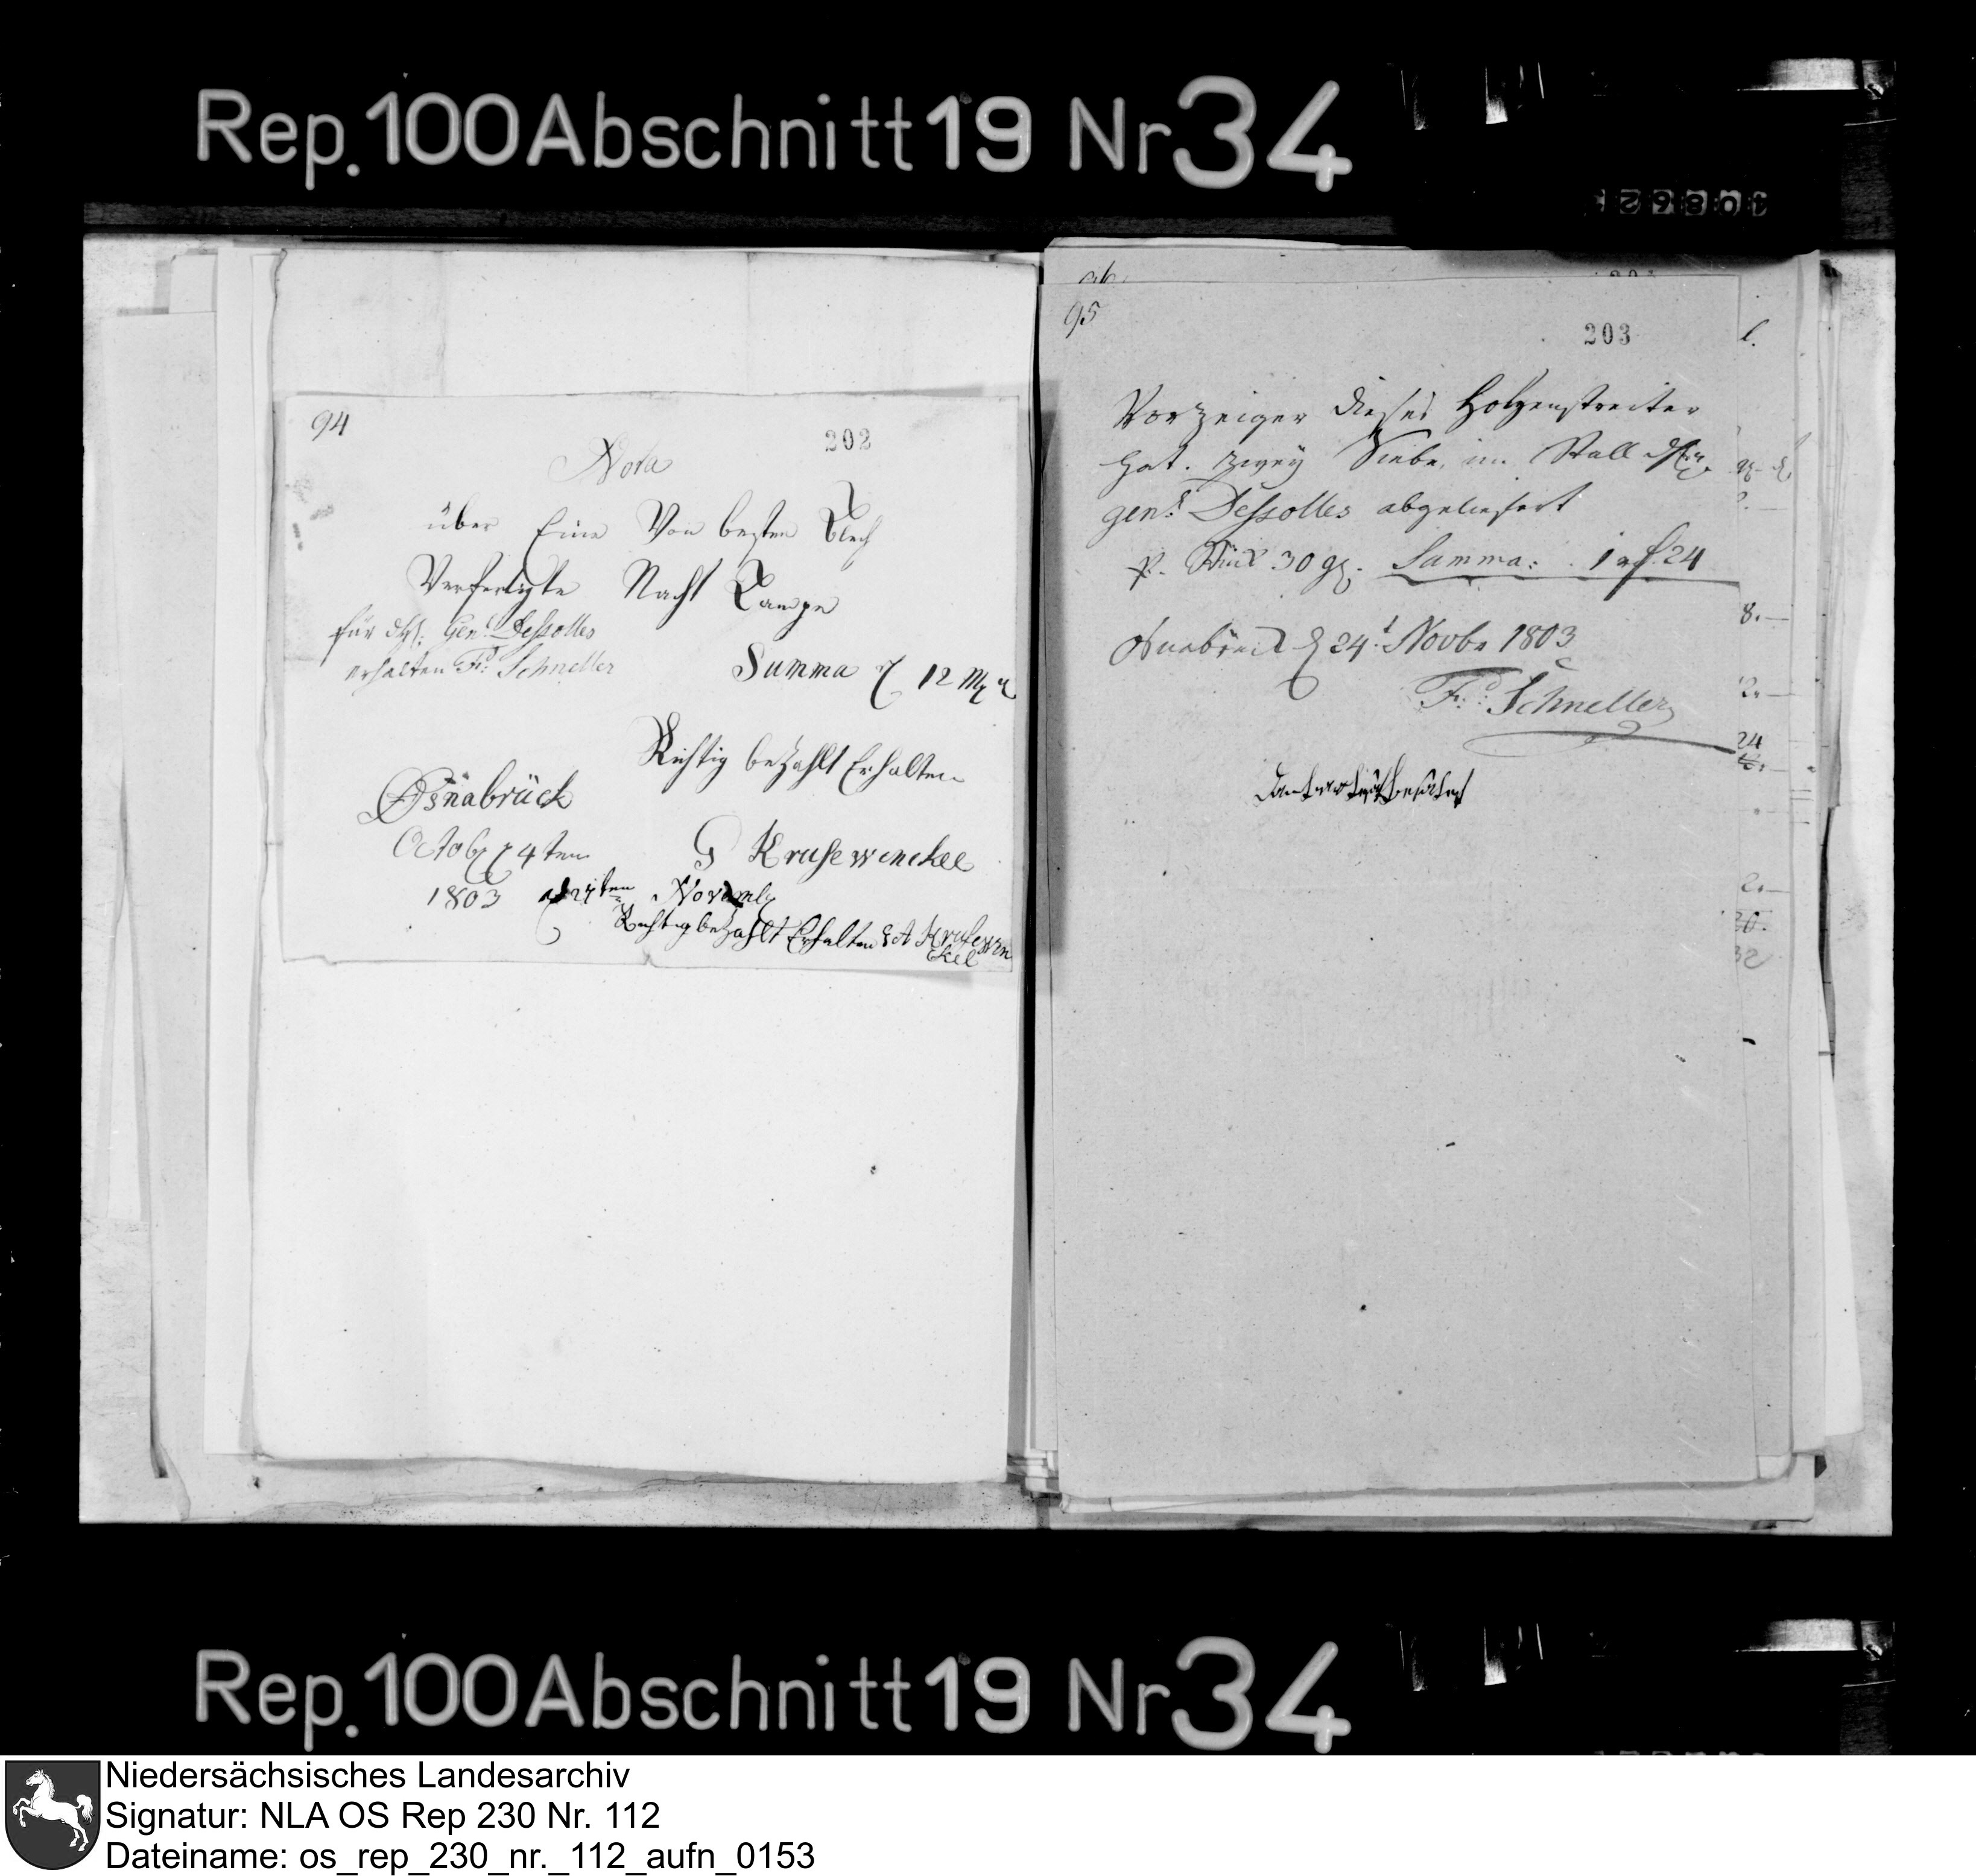 Rep.100 Abschnitt 19 Nr 34
94
202
Nota
über Eine Von besten Blech
Verfertigte Nacht Lampe
für Gen! Dessolles
erhalten Fd: Schneller
Summa 12 Mg
Richtig bezahlt Erhalten
Osnabrück
Octob 4ten
G Krusewinckel
1803 24ten Novemb
Richtig bezahlt Erhalten Krusewin
ckel
95
203
Vorzeiger dieses Holzenstreiter
hat zwey Siebe, im Stall
gen! Dessolles abgeliefert
p. Stück 30 gr. Summa: 1 rf 24
Osnabrück d 24t Novbr 1803
Fd: Schneller
Rep.100 Abschnitt 19 Nr 34
Niedersächsisches Landesarchiv
Signatur: NLA OS Rep 230 Nr. 112
Dateiname: os_rep_230_nr._112_aufn_0153